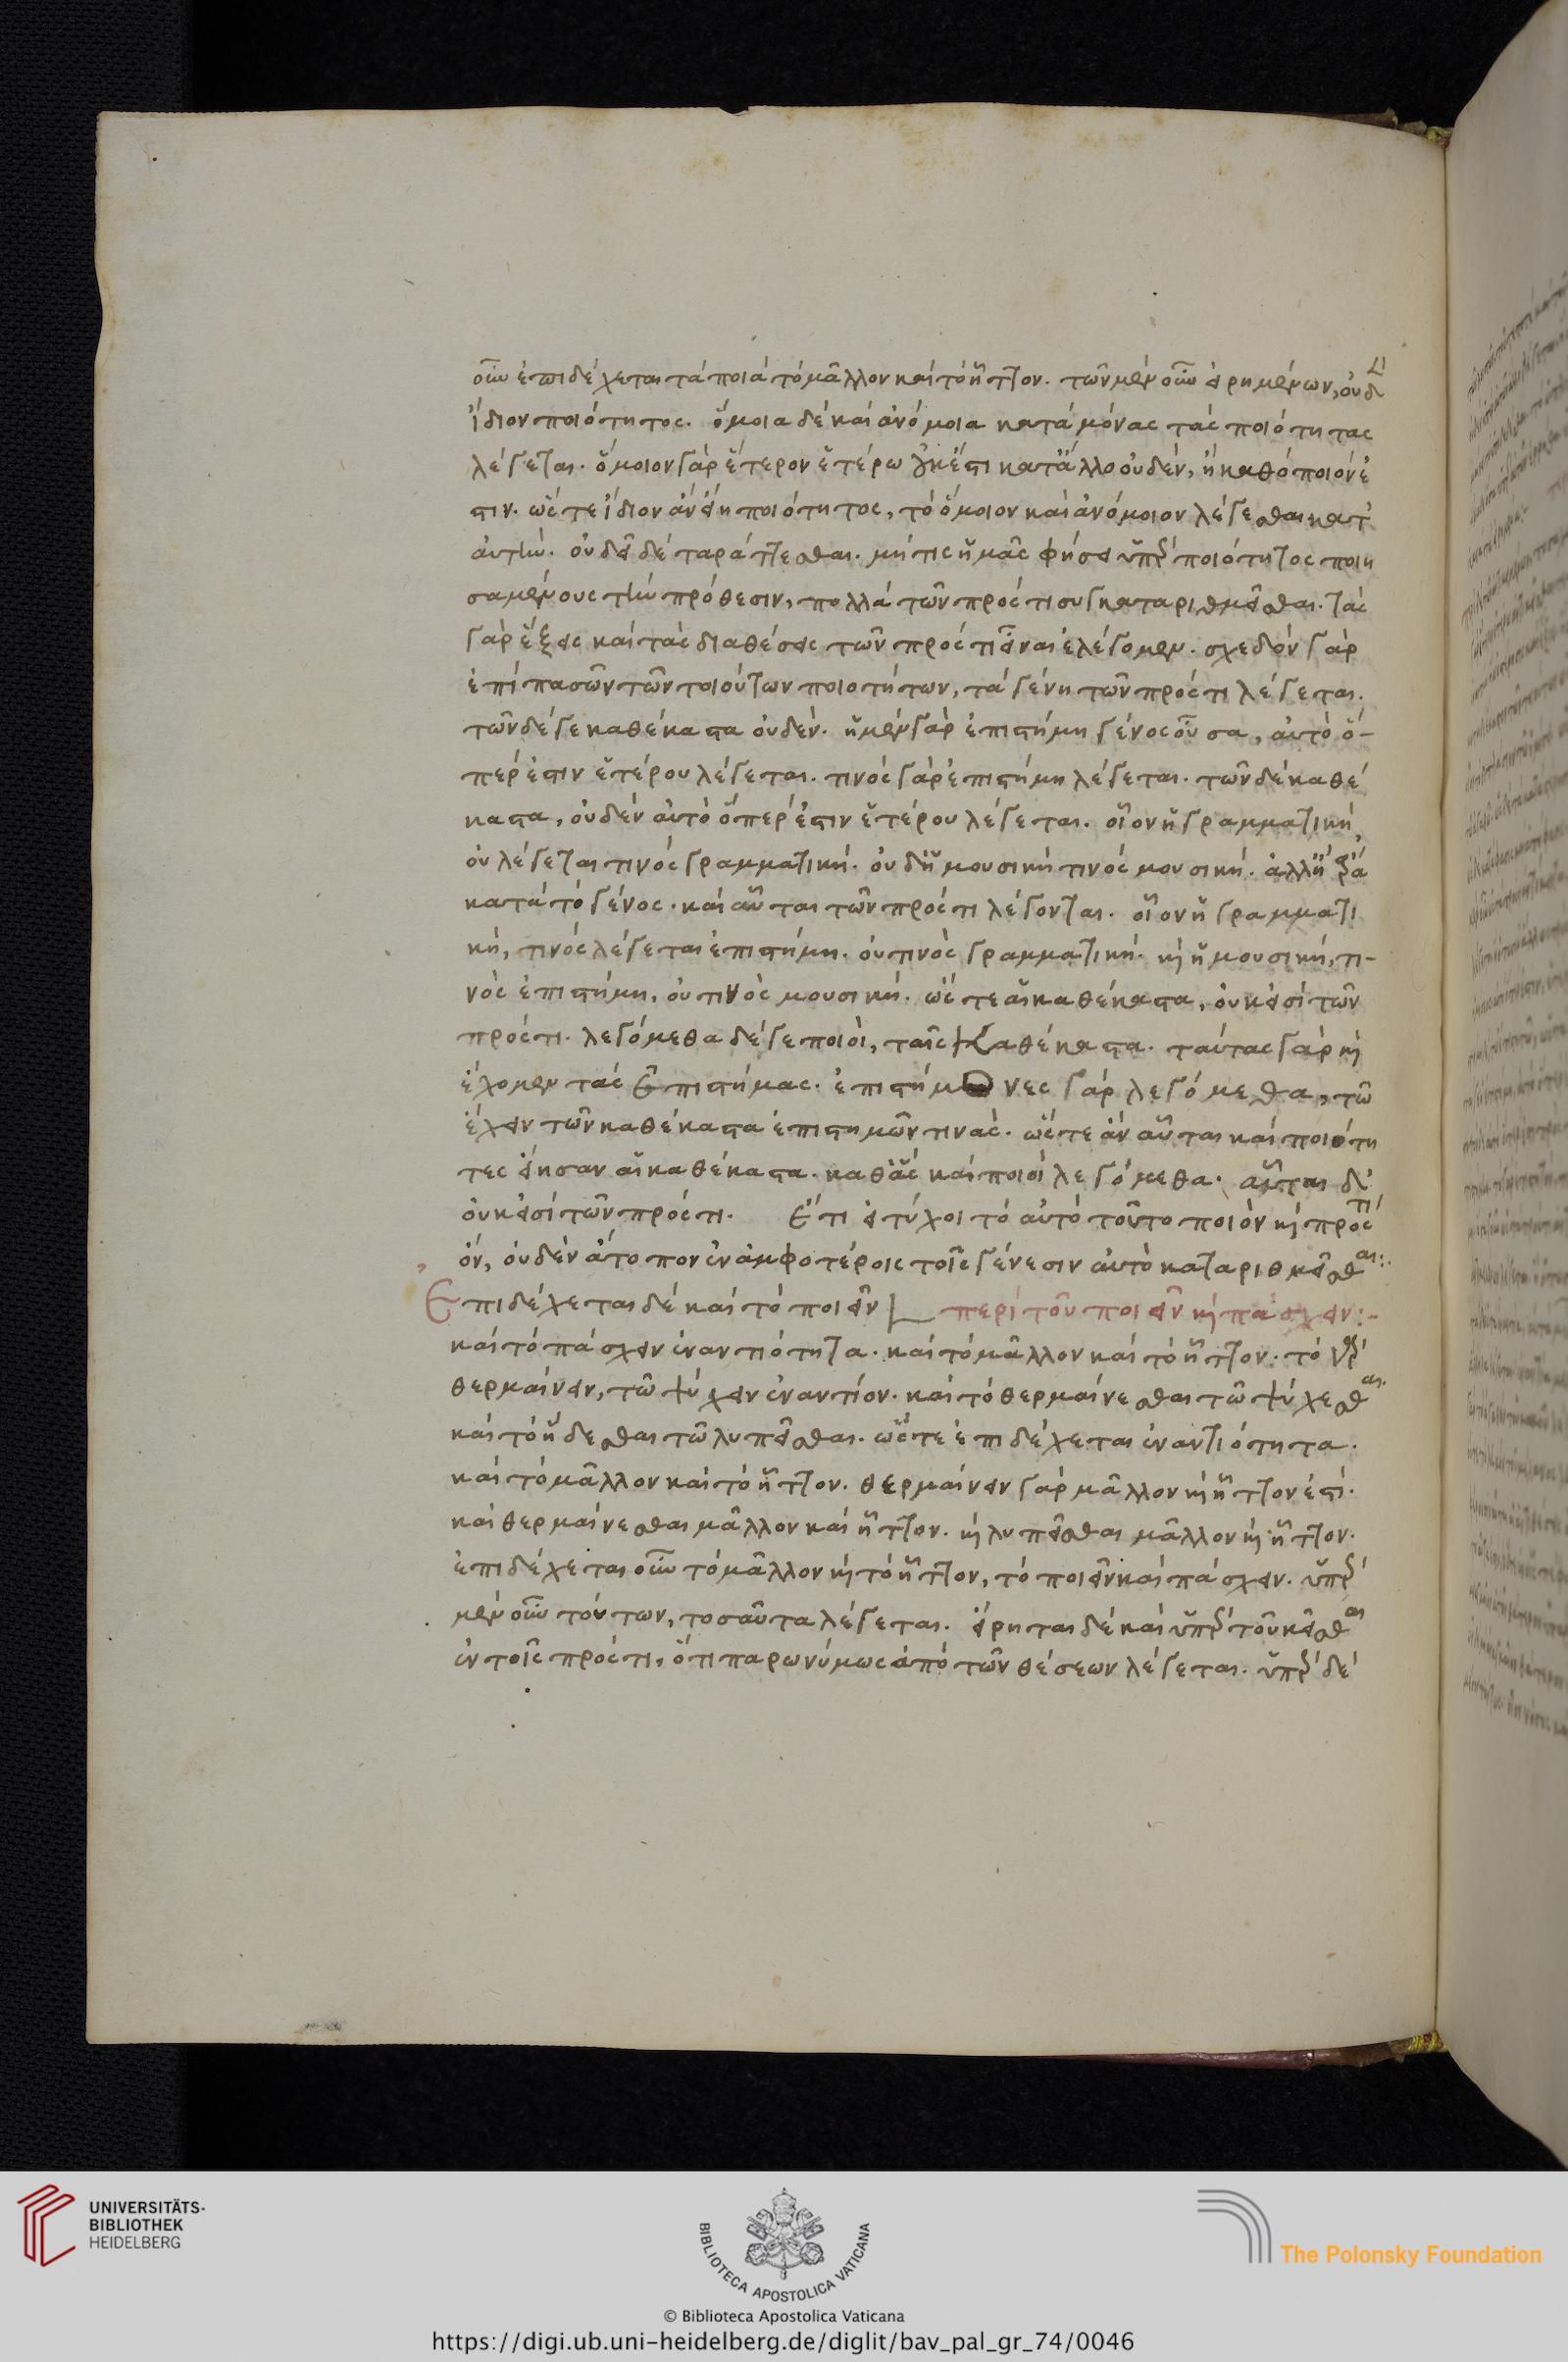 οὖν ἐπιδέχεται τὰ ποιὰ τὸ μᾶλλον καὶ τὸ ἧττον. τῶν μὲν οὖν εἰρημένων, οὐδὲν
ἴδιον ποιότητος. ὅμοια δὲ καὶ ἀνόμοια κατὰ μόνας τὰς ποιότητας
λέγεται. ὅμοιον γὰρ ἕτερον ἑτέρω οὐκ ἔστι κατ' ἄλλο οὐδὲν, ἢ καθὸ ποιόν ἐ
στιν. ὥστε ἴδιον ἂν εἴη ποιότητος, τὸ ὅμοιον καὶ ἀνόμοιον λέγεσθαι κατ'
αὐτήν. οὐ δεῖ δὲ ταράττεσθαι. μή τις ἡμᾶς φήσει ὑπὲρ ποιότητος ποιη
σαμένους τὴν πρόθεσιν, πολλὰ τῶν πρός τι συγκαταριθμεῖσθαι. τὰς
γὰρ ἕξεις καὶ τὰς διαθέσεις τῶν πρός τι εἶναι ἐλέγομεν. σχεδὸν γὰρ
ἐπὶ πασῶν τῶν τοιούτων ποιοτήτων, τὰ γένη τῶν πρός τι λέγεται.
τῶν δέ γε καθέκαστα οὐδέν. ἡ μὲν γὰρ ἐπιστήμη γένος οὖσα, αὐτὸ ὅ-
περ ἐστὶν ἑτέρου λέγεται. τινὸς γὰρ ἐπιστήμη λέγεται. τῶν δὲ καθέ
καστα, οὐδὲν αὐτὸ ὅπερ ἐστὶν ἑτέρου λέγεται. οἷον ἡ γραμματικὴ,
οὐ λέγεται τινὸς γραμματική. οὐδ' ἡ μουσικὴ τινὸς μουσική. ἀλλ' ἢ ἄρα
κατὰ τὸ γένος. καὶ αὗται τῶν πρός τι λέγονται. οἷον ἡ γραμματι
κὴ, τινὸς λέγεται ἐπιστήμη. οὐ τινὸς γραμματική. καὶ ἡ μουσικὴ, τι-
νὸς ἐπιστήμη, οὐ τινὸς μουσική. ὥστε αἱ καθέκαστα, οὐκ εἰσὶ τῶν
πρός τι. λεγόμεθα δέ γε ποιοὶ, ταῖς καθέκαστα. ταύτας γὰρ καὶ
ἔχομεν τὰς ἐπιστήμας. ἐπιστήμονες γὰρ λεγόμεθα, τῶ
ἔχειν τῶν καθέκαστα ἐπιστημῶν τινάς. ὥστε ἂν αὗται καὶ ποιότη
τες εἴησαν αἱ καθέκαστα. καθ' ἃς καὶ ποιοὶ λεγόμεθα. αὗται δὲ
οὐκ εἰσὶ τῶν πρός τι. Ἔτι εἰ τύχοι τὸ αὐτὸ τοῦτο ποιὸν καὶ πρός τι
ὂν, οὐδὲν ἄτοπον ἐν ἀμφοτέροις τοῖς γένεσιν αὐτὸ καταριθμεῖσθαι:
Ἐπιδέχεται δὲ καὶ τὸ ποιεῖν περὶ τοῦ ποιεῖν καὶ πάσχειν:-
καὶ τὸ πάσχειν ἐναντιότητα. καὶ τὸ μᾶλλον καὶ τὸ ἧττον. τὸ γὰρ
θερμαίνειν, τῶ ψύχειν ἐναντίον. καὶ τὸ θερμαίνεσθαι τῶ ψύχεσθαι.
καὶ τὸ ἥδεσθαι τῶ λυπεῖσθαι. ὥστε ἐπιδέχεται ἐναντιότητα.
καὶ τὸ μᾶλλον καὶ τὸ ἧττον. θερμαίνειν γὰρ μᾶλλον καὶ ἧττον ἐστί.
καὶ θερμαίνεσθαι μᾶλλον καὶ ἧττον. καὶ λυπεῖσθαι μᾶλλον καὶ ἧττον.
ἐπιδέχεται οὖν τὸ μᾶλλον καὶ τὸ ἧττον, τὸ ποιεῖν καὶ πάσχειν. ὑπὲρ
μὲν οὖν τούτων, τοσαῦτα λέγεται. εἴρηται δὲ καὶ ὑπὲρ τοῦ κεῖσθαι
ἐν τοῖς πρός τι, ὅτι παρωνύμως ἀπὸ τῶν θέσεων λέγεται. ὑπὲρ δὲ
UNIVERSITÄTS-
BIBLIOTHEK
HEIDELBERG
BIBLIOTECA APOSTOLICA VATICANA
The Polonsky Foundation
© Biblioteca Apostolica Vaticana
https://digi.ub.uni-heidelberg.de/diglit/bav_pal_gr_74/0046